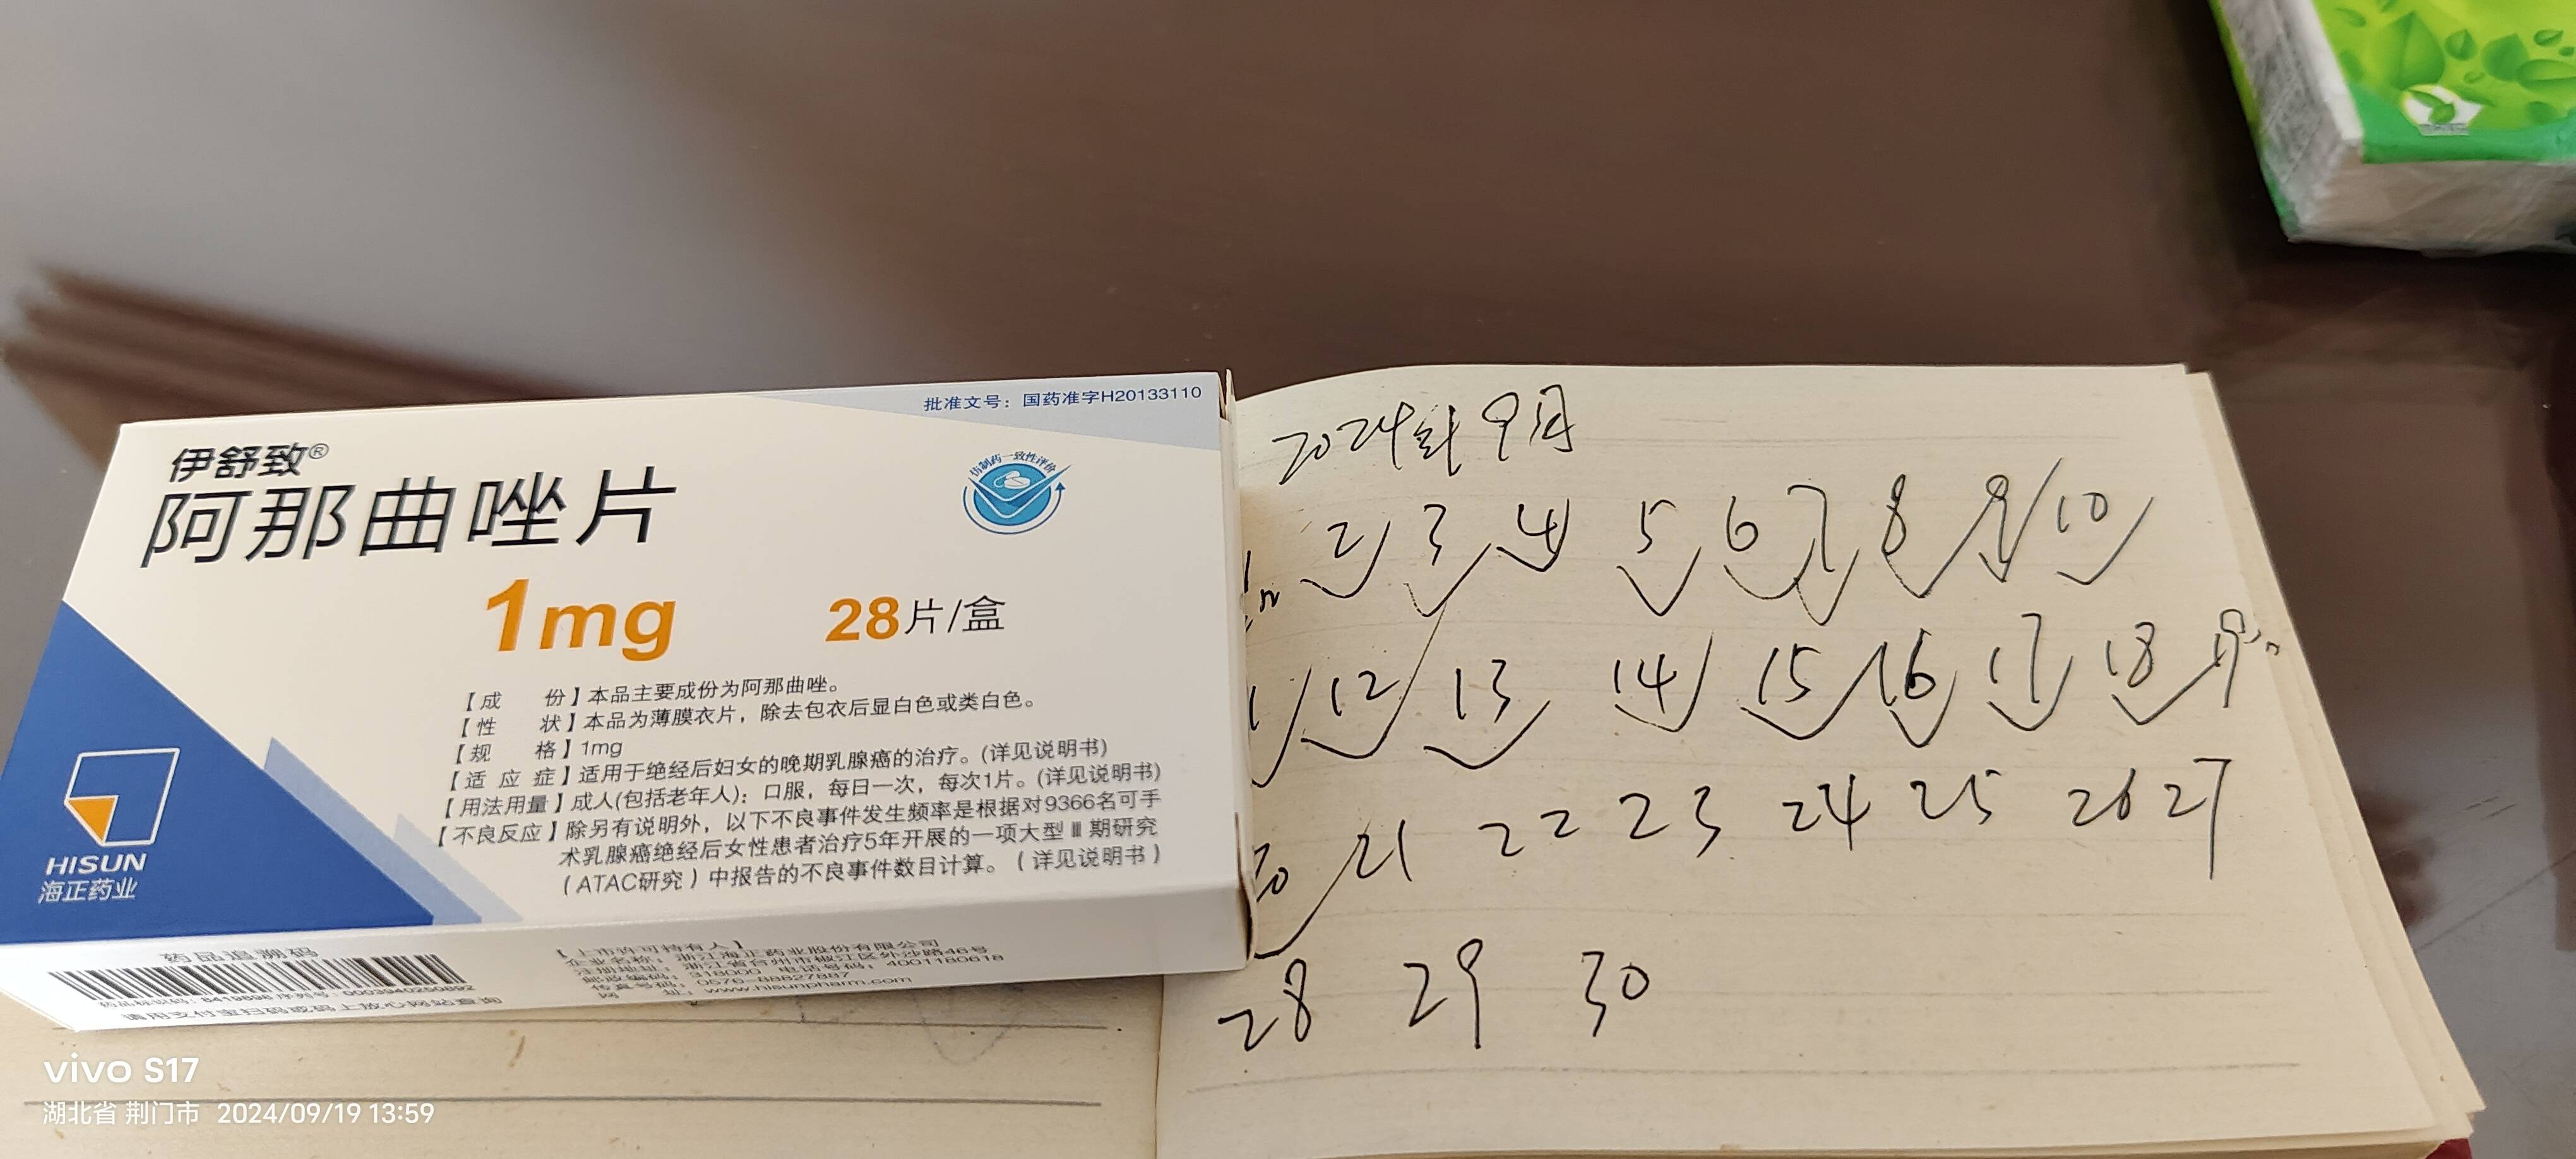 批准文号：国药准字H20133110
伊舒致®
阿那曲唑片
仿制药一致性评价
1mg 28片/盒
【成 份】本品主要成份为阿那曲唑。
【性 状】本品为薄膜衣片，除去包衣后显白色或类白色。
【规 格】1mg
【适 应 症】适用于绝经后妇女的晚期乳腺癌的治疗。(详见说明书)
【用法用量】成人(包括老年人)：口服，每日一次，每次1片。(详见说明书)
【不良反应】除另有说明外，以下不良事件发生频率是根据对9366名可手
术乳腺癌绝经后女性患者治疗5年开展的一项大型Ⅲ期研究
（ATAC研究）中报告的不良事件数目计算。（详见说明书）
HISUN
海正药业
药品追溯码
药品标识码：8419898 序列号：0003940250892
请用支付宝扫码或码上放心网站查询
【上市许可持有人】
企业名称：浙江海正药业股份有限公司
注册地址：浙江省台州市椒江区外沙路46号
邮政编码：318000 电话号码：4001180618
传真号码：0576-88827887
网 址：www.hisunpharm.com
2024年9月
2 3 4 5 6 7 8 9 10
12 13 14 15 16 17 18 19
20 21 22 23 24 25 26 27
28 29 30
vivo S17
湖北省 荆门市 2024/09/19 13:59